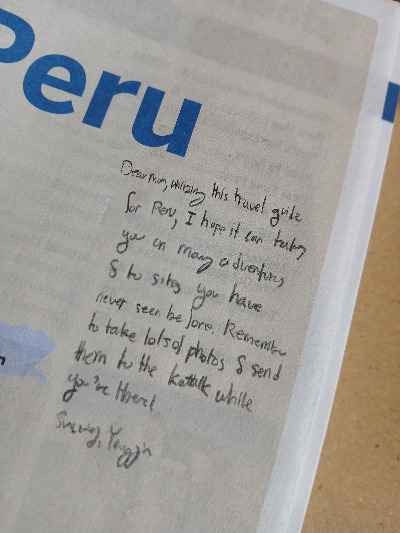 Peru
Dear mom, utilizing this travel guide
for Peru, I hope it can taking
you on many adventures
& to sites you have
never seen before. Remember
to take lots of photos & send
them to the kattalk while
you're there!
Sincerely, Yongjin
n